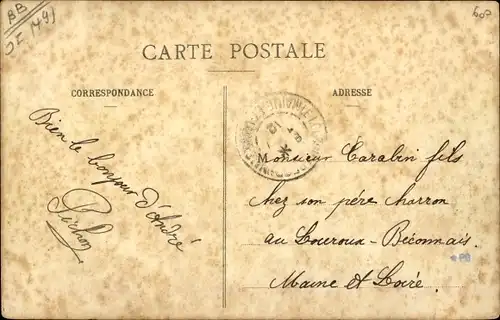 BB
DE (49)
60F
CARTE POSTALE
CORRESPONDANCE
ADRESSE
Bien le bonjour d'André
Pichon
Monsieur Carabin fils
chez son père charron
au Louroux-Béconnais
Maine et Loire